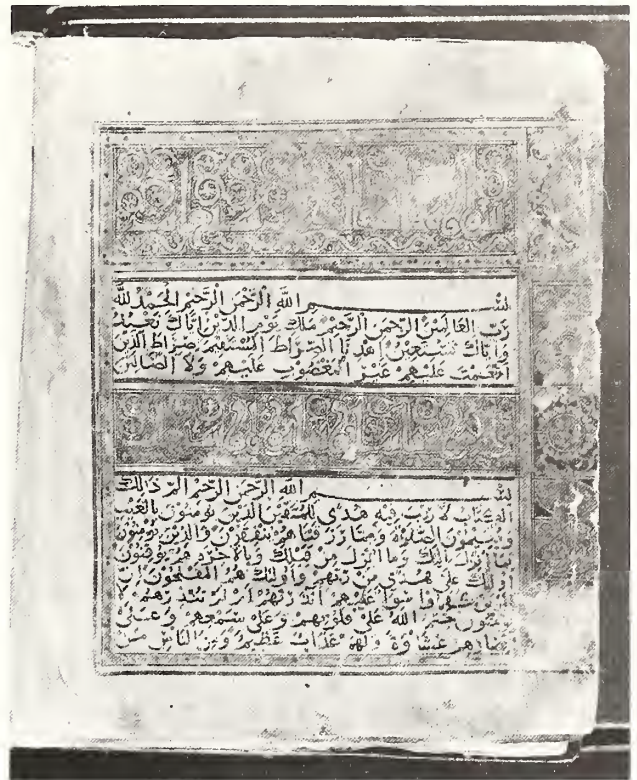 بسم الله الرحمن الرحيم الحمد لله
رب العالمين الرحمن الرحيم ملك يوم الدين اياك نعبد
و اياك نستعين اهدنا الصراط المستقيم صراط الذين
انعمت عليهم غير المغضوب عليهم ولا الضالين
بسم الله الرحمن الرحيم الم ذلك
الكتاب لا ريب فيه هدى للمتقين الذين يؤمنون بالغيب
و يقيمون الصلوة و مما رزقناهم ينفقون والذين يؤمنون
بما انزل اليك وما انزل من قبلك وبالاخرة هم يوقنون
اولئك على هدى من ربهم واولئك هم المفلحون ان
الذين كفروا سواء عليهم اانذرتهم ام لم تنذرهم لا
يؤمنون ختم الله على قلوبهم وعلى سمعهم وعلى
ابصارهم غشاوة ولهم عذاب عظيم ومن الناس من